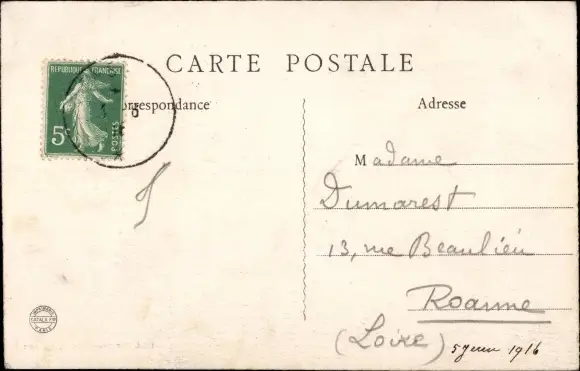 CARTE POSTALE
REPUBLIQUE FRANÇAISE
5c
POSTES
orrespondance
Adresse
Madame
Dumarest
13, rue Beaulieu
Roanne
(Loire)
1916